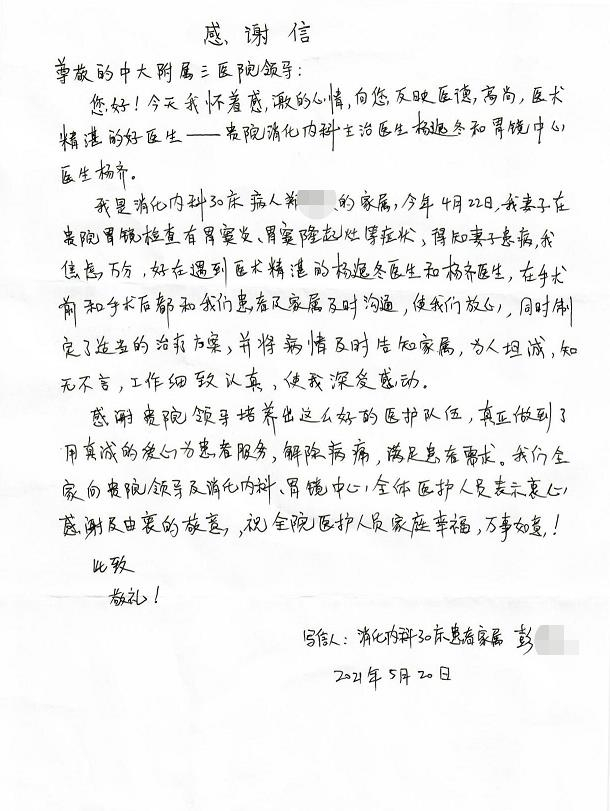 感谢信
尊敬的中大附属三医院领导：
您好！今天我怀着感激的心情，向您反映医德高尚，医术
精湛的好医生——贵院消化内科主治医生杨逸冬和胃镜中心
医生杨齐。
我是消化内科30床病人郑的家属，今年4月22日，我妻子在
贵院胃镜检查有胃窦炎、胃窦隆起灶等症状，得知妻子患病，我
焦虑万分，好在遇到医术精湛的杨逸冬医生和杨齐医生，在手术
前和手术后都和我们患者及家属及时沟通，使我们放心，同时制
定了适当的治疗方案，并将病情及时告知家属，为人坦诚，知
无不言，工作细致认真，使我深受感动。
感谢贵院领导培养出这么好的医护队伍，真正做到了
用真诚的爱心为患者服务，解除病痛，满足患者需求。我们全
家向贵院领导及消化内科、胃镜中心全体医护人员表示衷心
感谢及由衷的敬意，祝全院医护人员家庭幸福，万事如意！
此致
敬礼！
写信人：消化内科30床患者家属 彭
2021年5月20日